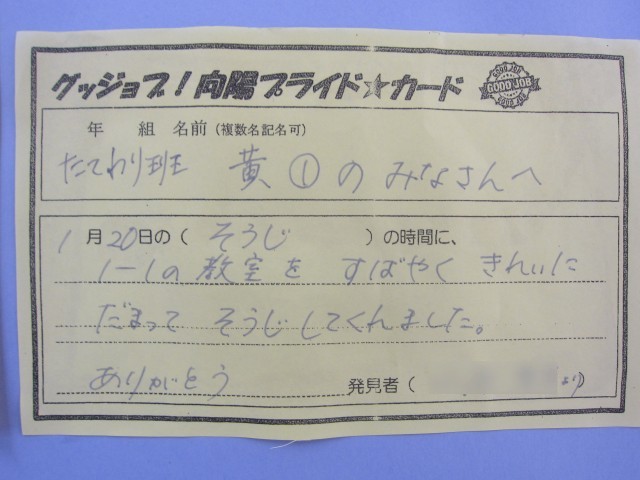 グッジョブ！向陽プライド☆カード
GOOD JOB
GOOD JOB
GOOD JOB
年 組 名前（複数名記名可）
たてわり班 黄①のみなさんへ
1月20日の（そうじ）の時間に、
1-1の教室を すばやく きれいに
だまって そうじしてくれました。
ありがとう 発見者（ より）